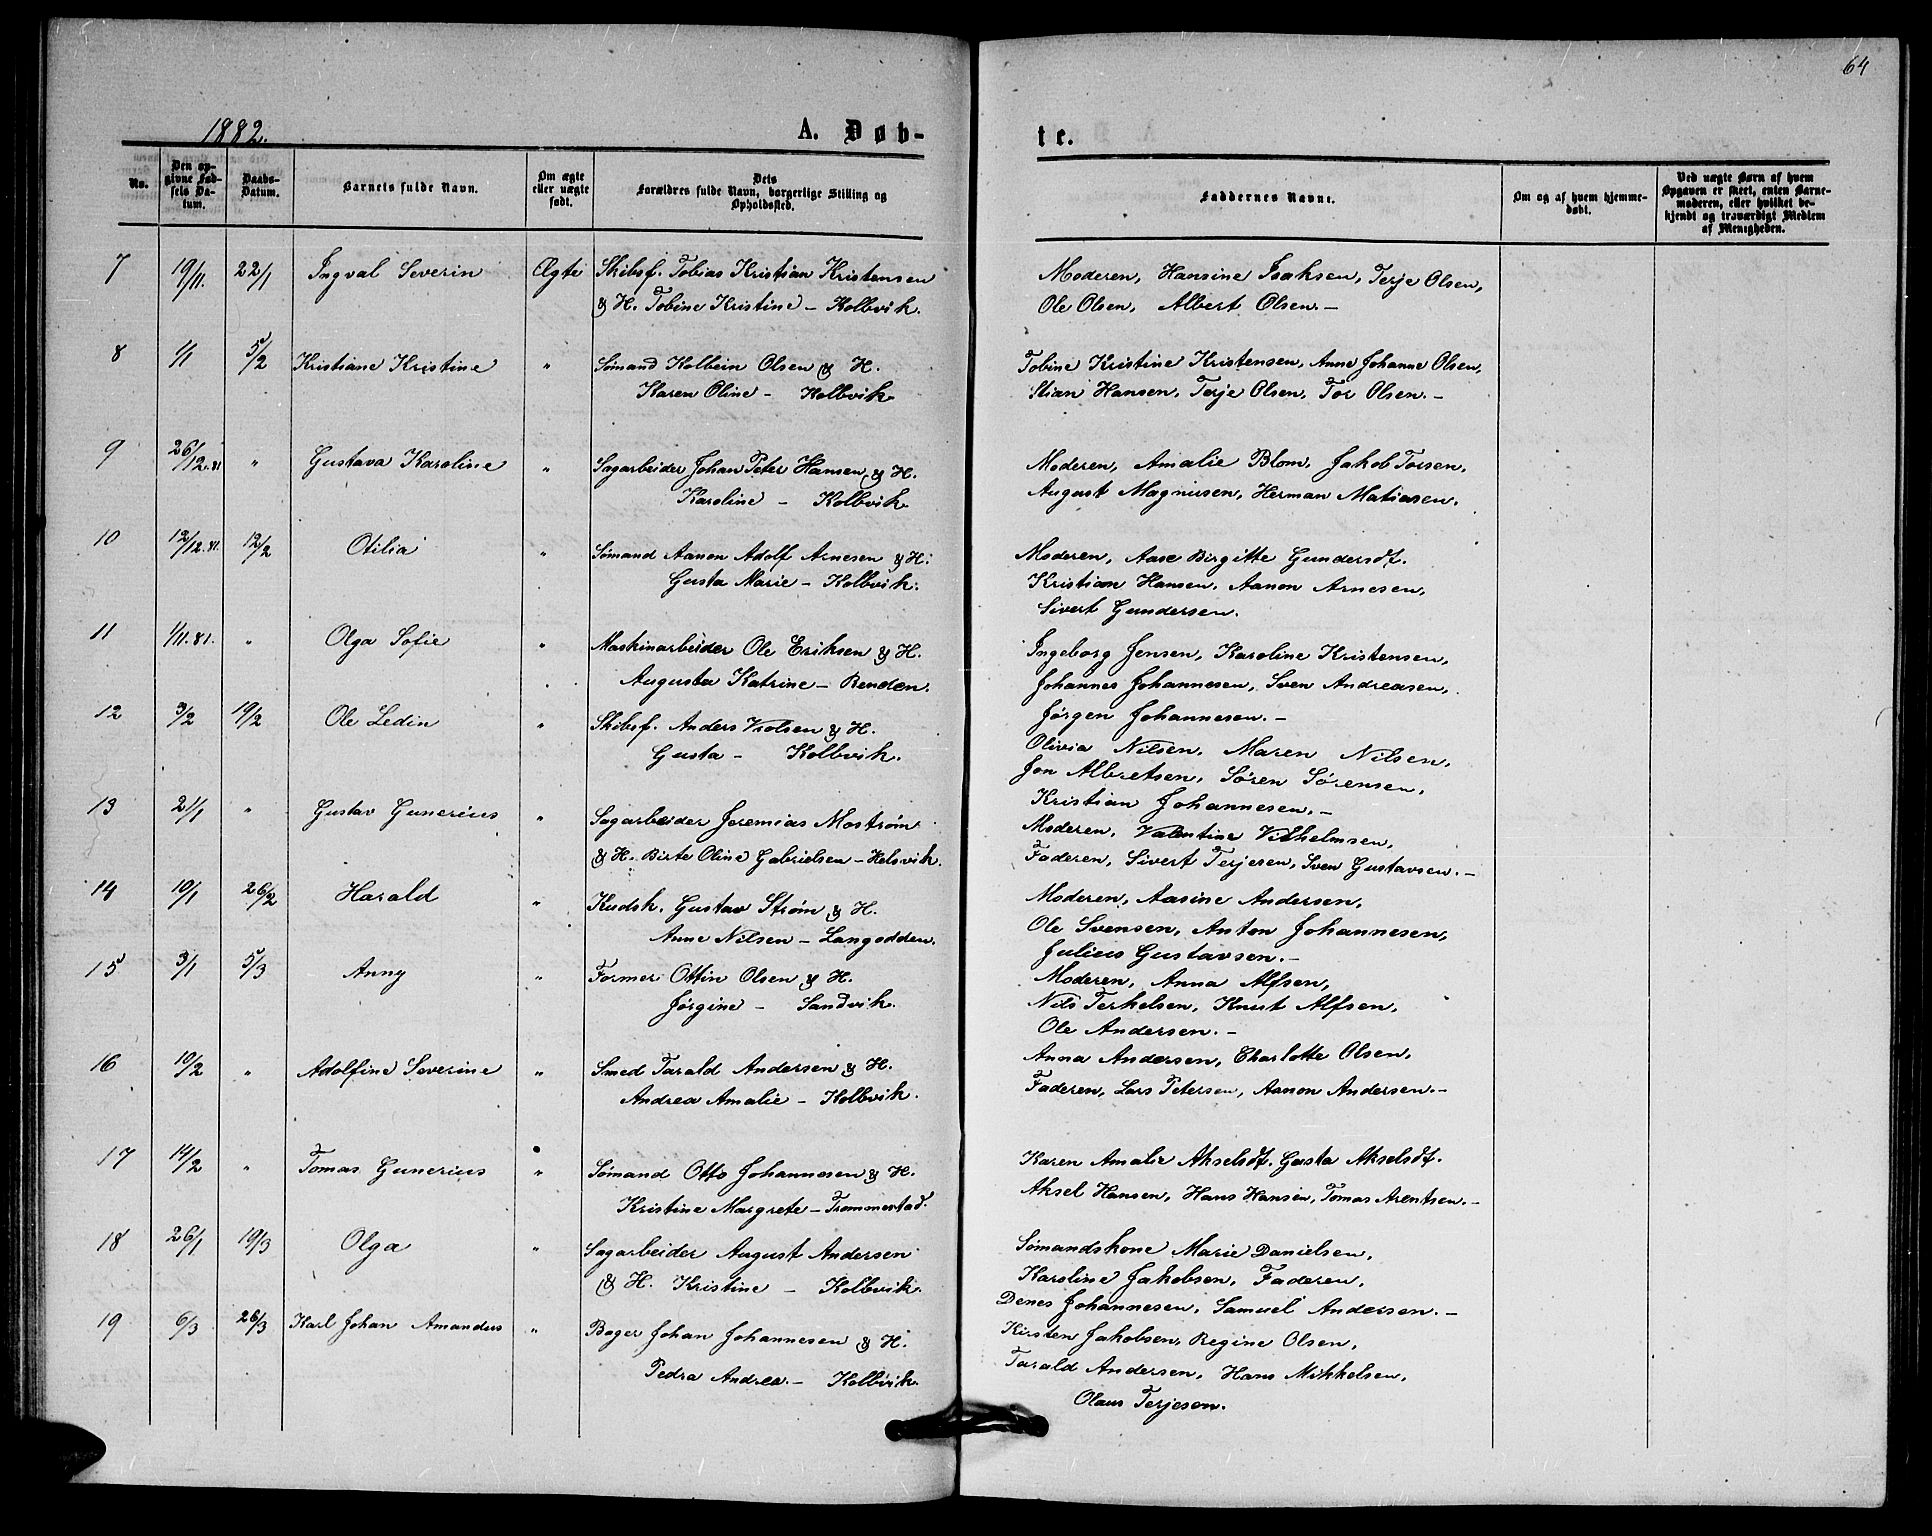 64
1882.
A. Døb-
te.
No.
Den op-
givne Fød-
sels Da-
tum.
Daabs-
Datum.
Barnets fulde Navn.
Om ægte
eller uægte
født.
Dets
Forældres fulde Navn, borgerlige Stilling og
Opholdssted.
Faddernes Navne.
Om og af hvem hjemme-
døbt.
Ved uægte Børn af hvem
Opgaven er skeet, enten Barne-
moderen, eller hvilket be-
kjendt og troværdigt Medlem
af Menigheden.
7 19/11. 22/1 Ingval Severin Ægte Skibsf. Tobias Kristian Kristensen
& H. Tobine Kristine – Kolbvik.
Moderen, Hansine Isaksen, Terje Olsen,
Ole Olsen, Albert Olsen. –
8 1/1 5/2 Kristiane Kristine " Sömand Kolbein Olsen & H.
Karen Oline – Kolbvik
Tobine Kristine Kristensen, Anne Johanne Olsen,
Stian Hansen, Terje Olsen, Tor Olsen. –
9 26/12.81 " Gustava Karoline " Sagarbeider Johan Peter Hansen & H.
Karoline – Kolbvik
Moderen, Amalie Blom, Jakob Torsen,
August Magnusen, Herman Matiasen.
10 12/12.81. 12/2 Otilia " Sömand Aanon Adolf Arnesen & H.
Gusta Marie – Kolbvik.
Moderen, Aase Birgitte Gundersdt.
Kristian Hansen, Aanon Arnesen,
Sivert Gundersen.
11 1/11.81. " Olga Sofie " Maskinarbeider Ole Eriksen & H.
Augusta Katrine – Renden.
Ingeborg Jensen, Karoline Kristensen,
Johannes Johannesen, Sven Andreasen,
Jörgen Johannesen. –
12 3/2 19/2 Ole Ledin " Skibsf. Anders Violsen & H.
Gusta – Kolbvik.
Olivia Nilsen, Maren Nilsen,
Jon Albretsen, Sören Sörensen,
Kristian Johannesen. –
13 21/1 " Gustav Gunerius " Sagarbeider Jeremias Moström
& H. Birte Oline Gabrielsen – Kelsvik.
Moderen, Valentine Vilhelmsen,
Faderen, Sivert Terjesen, Sven Gustavsen. –
14 10/1 26/2 Harald " Kudsk. Gustav Ström & H.
Anne Nilsen – Langodden.
Moderen, Aasine Andersen,
Ole Svensen, Anton Johannesen,
Julius Gustavsen. –
15 3/1 5/3 Anny " Former Ottin Olsen & H.
Jörgine – Sandvik.
Moderen, Anna Alfsen,
Nils Terkelsen, Knut Alfsen,
Ole Andersen. –
16 10/2 " Adolfine Severine " Smed Tarald Andersen & H.
Andrea Amalie – Kolbvik.
Anna Andersen, Charlotte Olsen,
Faderen, Lars Petersen, Aanon Andersen. –
17 14/2 " Tomas Gunerius " Sömand Otto Johannesen & H.
Kristine Margrete – Trommestad.
Karen Amalie Akselsdt. Gusta Akselsdt.
Aksel Hansen, Hans Hansen, Tomas Arentsen. –
18 26/1 19/3 Olga " Sagarbeider August Andersen
& H. Kristine – Kolbvik.
Sömandskone Marie Danielsen,
Karoline Jakobsen, Faderen,
Denes Johannesen, Samuel Andersen. –
19 6/3 26/3 Karl Johan Amanders " Bager Johan Johannesen & H.
Pedra Andrea. – Kolbvik
Kirsten Jakobsen, Regine Olsen,
Tarald Andersen, Hans Mikkelsen,
Olaus Terjesen.